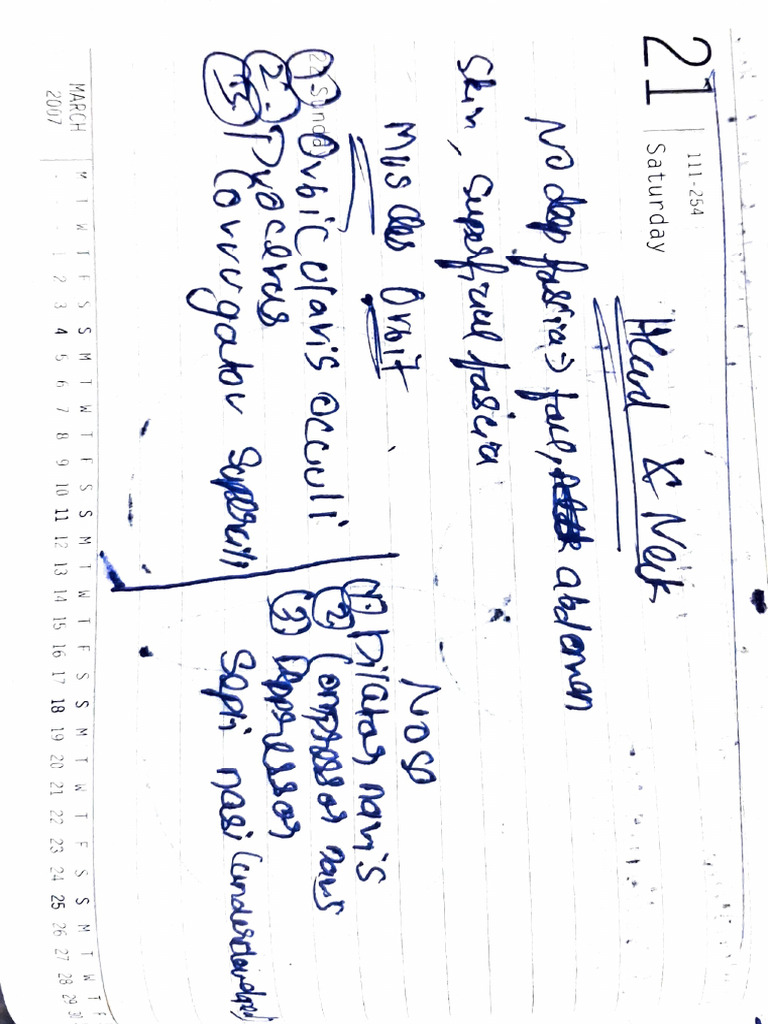 21
111-254
Saturday
Head & Neck
No deep fascia → face, abdomen
Skin, Superficial fascia
Muscles Orbit
22 Sunday
① Orbicularis occuli
②. Procerus
③ Corrugator supercili
Nose
①. Dilator naris
② Compressor naris
③ Deppressor
Septi nasi (underdeveloped)
MARCH
2007
M T W T F S S M T W T F S S M T W T F S S M T W T F S S M T W T F
1 2 3 4 5 6 7 8 9 10 11 12 13 14 15 16 17 18 19 20 21 22 23 24 25 26 27 28 29 30